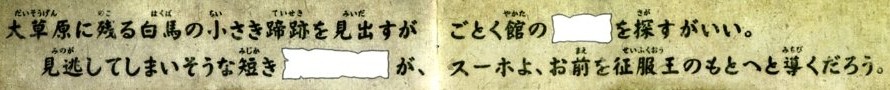 大草原に残る白馬の小さき蹄跡を見出すが ごとく館の を探すがいい。
見逃してしまいそうな短き が、 スーホよ、お前を征服王のもとへと導くだろう。